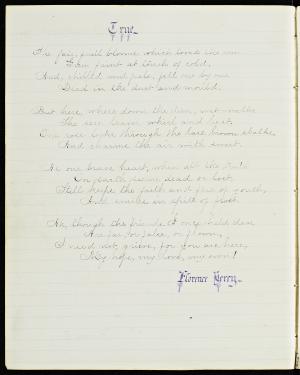 True.
The fair, frail blooms which loved the sun
Grew faint at touch of cold,
And, chilled and pale, fell one by one
Dead in the dust and mould.
But here, where down the, wet walks
The sere leaves whirl and
One rose looks through the bare brown stalks
And charms the air with sweet.
As one brave heart, when all the
On earth seem dead or lost,
Still keeps the faith and fire of youth,
And smiles in spite of frost.
Ah, though the friends I once held dear
Are far, or false, or flown,
I need not grieve, for you are here,
My hope, my love, my own!
Florence Percy.